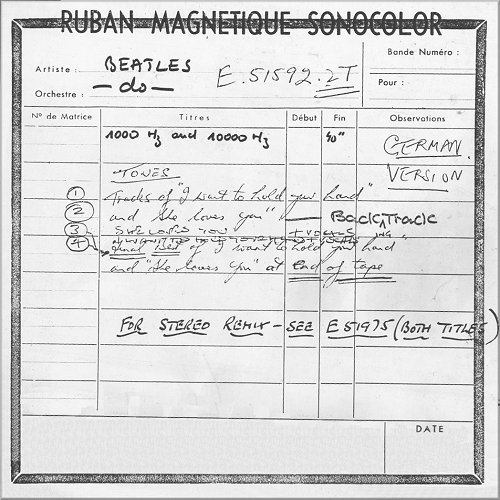 RUBAN MAGNETIQUE SONOCOLOR
Bande Numéro :
Artiste : BEATLES
E.51592.2T
Pour :
Orchestre : — do —
Nº de Matrice Titres Début Fin Observations
1000 Hz and 10000 Hz 40"
GERMAN
TONES
VERSION
1 Tracks of "I want to hold your hand"
2 and "She loves you" BACK(TRACK
ING
3 SHE LOVES YOU + VOCALS
4 I WANT TO HOLD YOUR HAND + VOCALS
of "I want to hold your hand"
and "She loves You" at end of tape
FOR STEREO REMIX - SEE E51975 (BOTH TITLES)
DATE